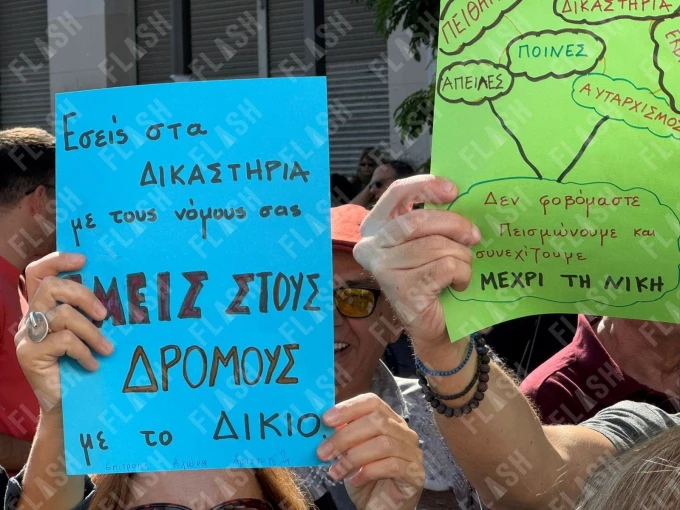 Εσείς στα
ΔΙΚΑΣΤΗΡΙΑ
με τους νόμους σας
ΕΜΕΙΣ ΣΤΟΥΣ
ΔΡΟΜΟΥΣ
με το ΔΙΚΙΟ.
ΔΙΚΑΣΤΗΡΙΑ
ΠΟΙΝΕΣ
ΑΠΕΙΛΕΣ
ΑΥΤΑΡΧΙΣΜΟΣ
Δεν φοβόμαστε
Πεισμώνουμε και
συνεχίζουμε
ΜΕΧΡΙ ΤΗ ΝΙΚΗ
FLASH